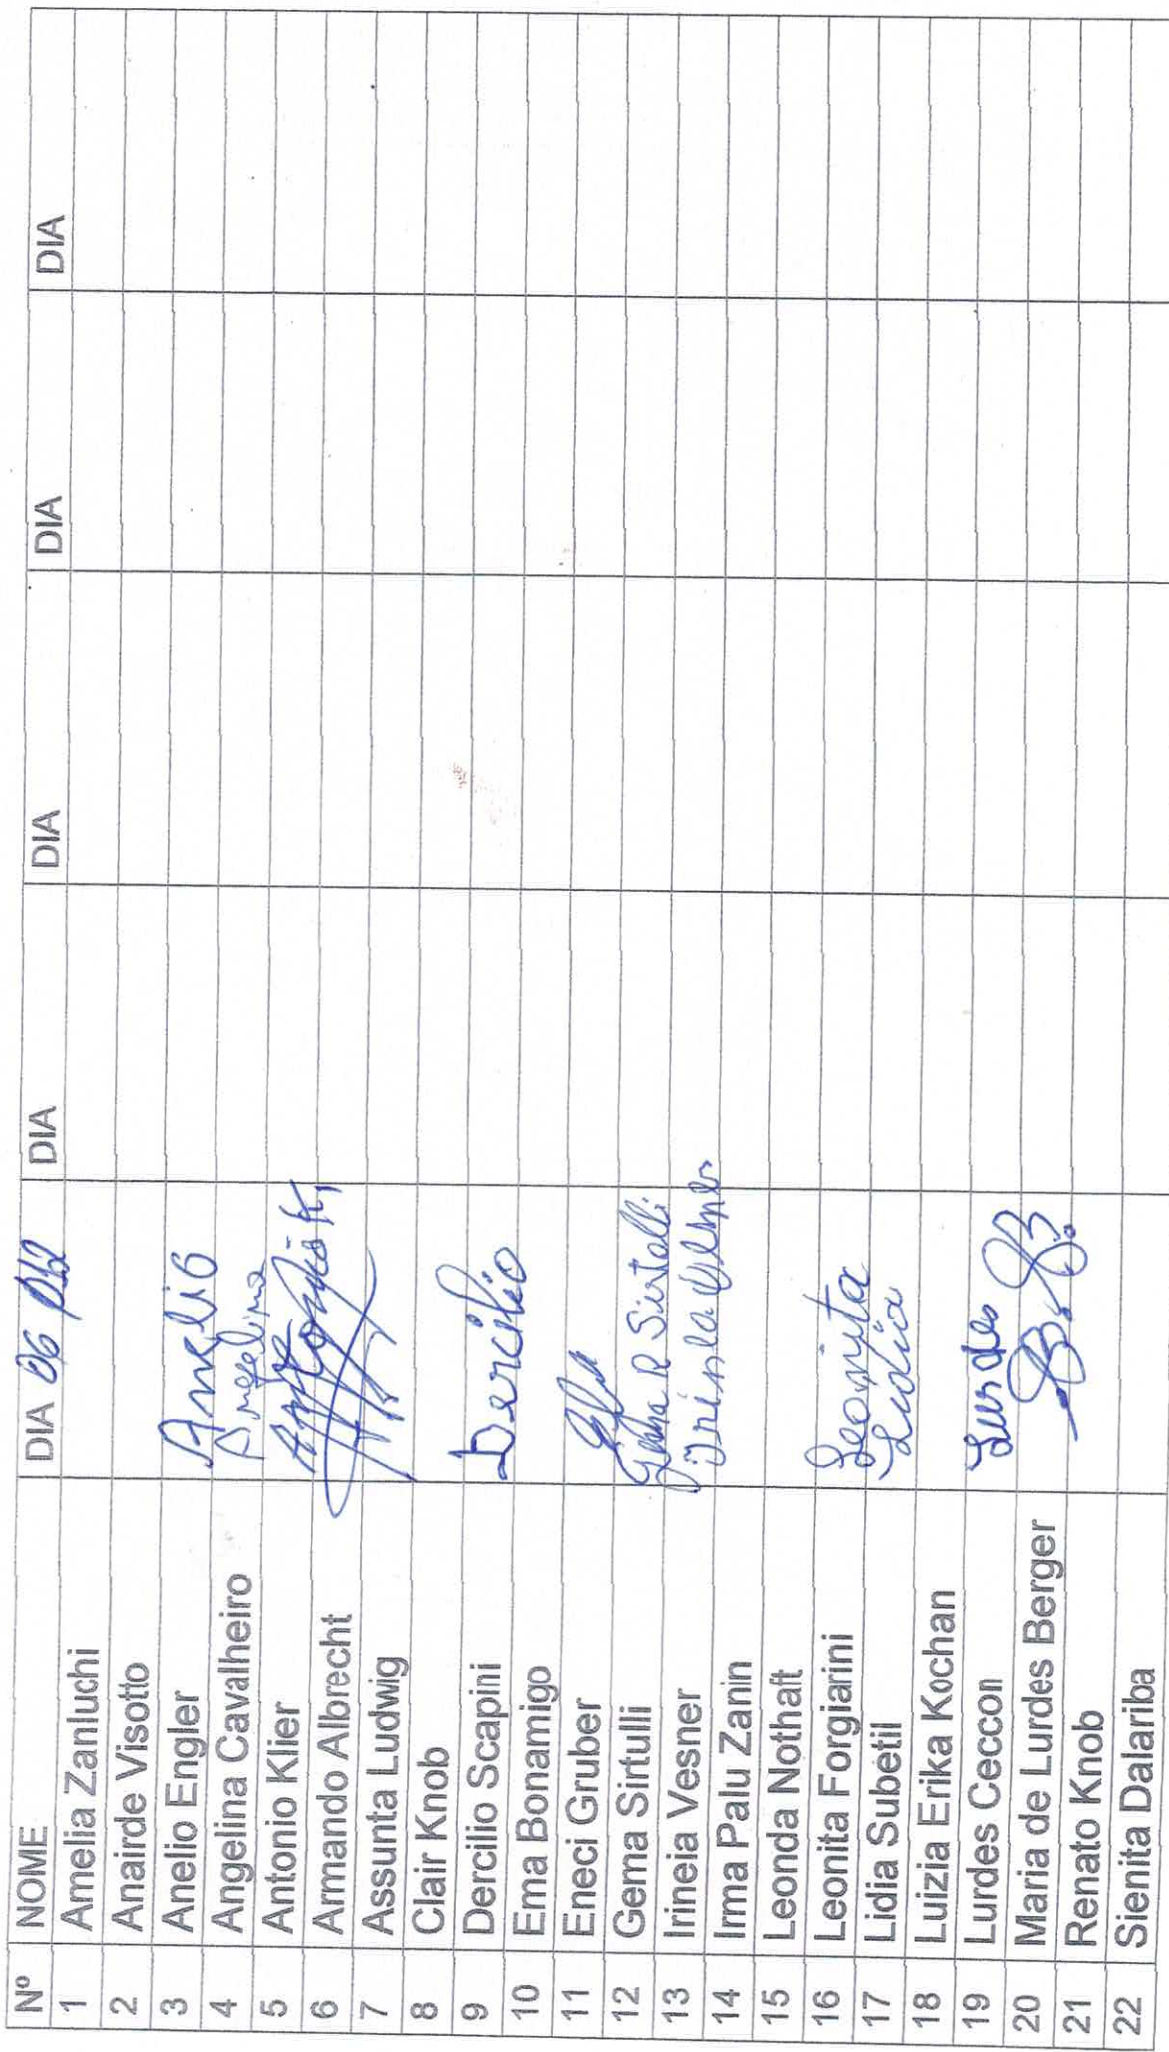 Nº NOME DIA 06 DIA DIA DIA DIA
1 Amelia Zanluchi
2 Anairde Visotto
3 Anelio Engler Anelio
4 Angelina Cavalheiro Angelina
5 Antonio Klier Antonio K
6 Armando Albrecht
7 Assunta Ludwig
8 Clair Knob
9 Dercilio Scapini Dercilio
10 Ema Bonamigo
11 Eneci Gruber
12 Gema Sirtulli Gema R Sirtolli
13 Irineia Vesner
14 Irma Palu Zanin
15 Leonda Nothaft
16 Leonita Forgiarini Leonita
17 Lidia Subetil Lidia
18 Luizia Erika Kochan
19 Lurdes Ceccon Lurdes
20 Maria de Lurdes Berger
21 Renato Knob
22 Sienita Dalariba